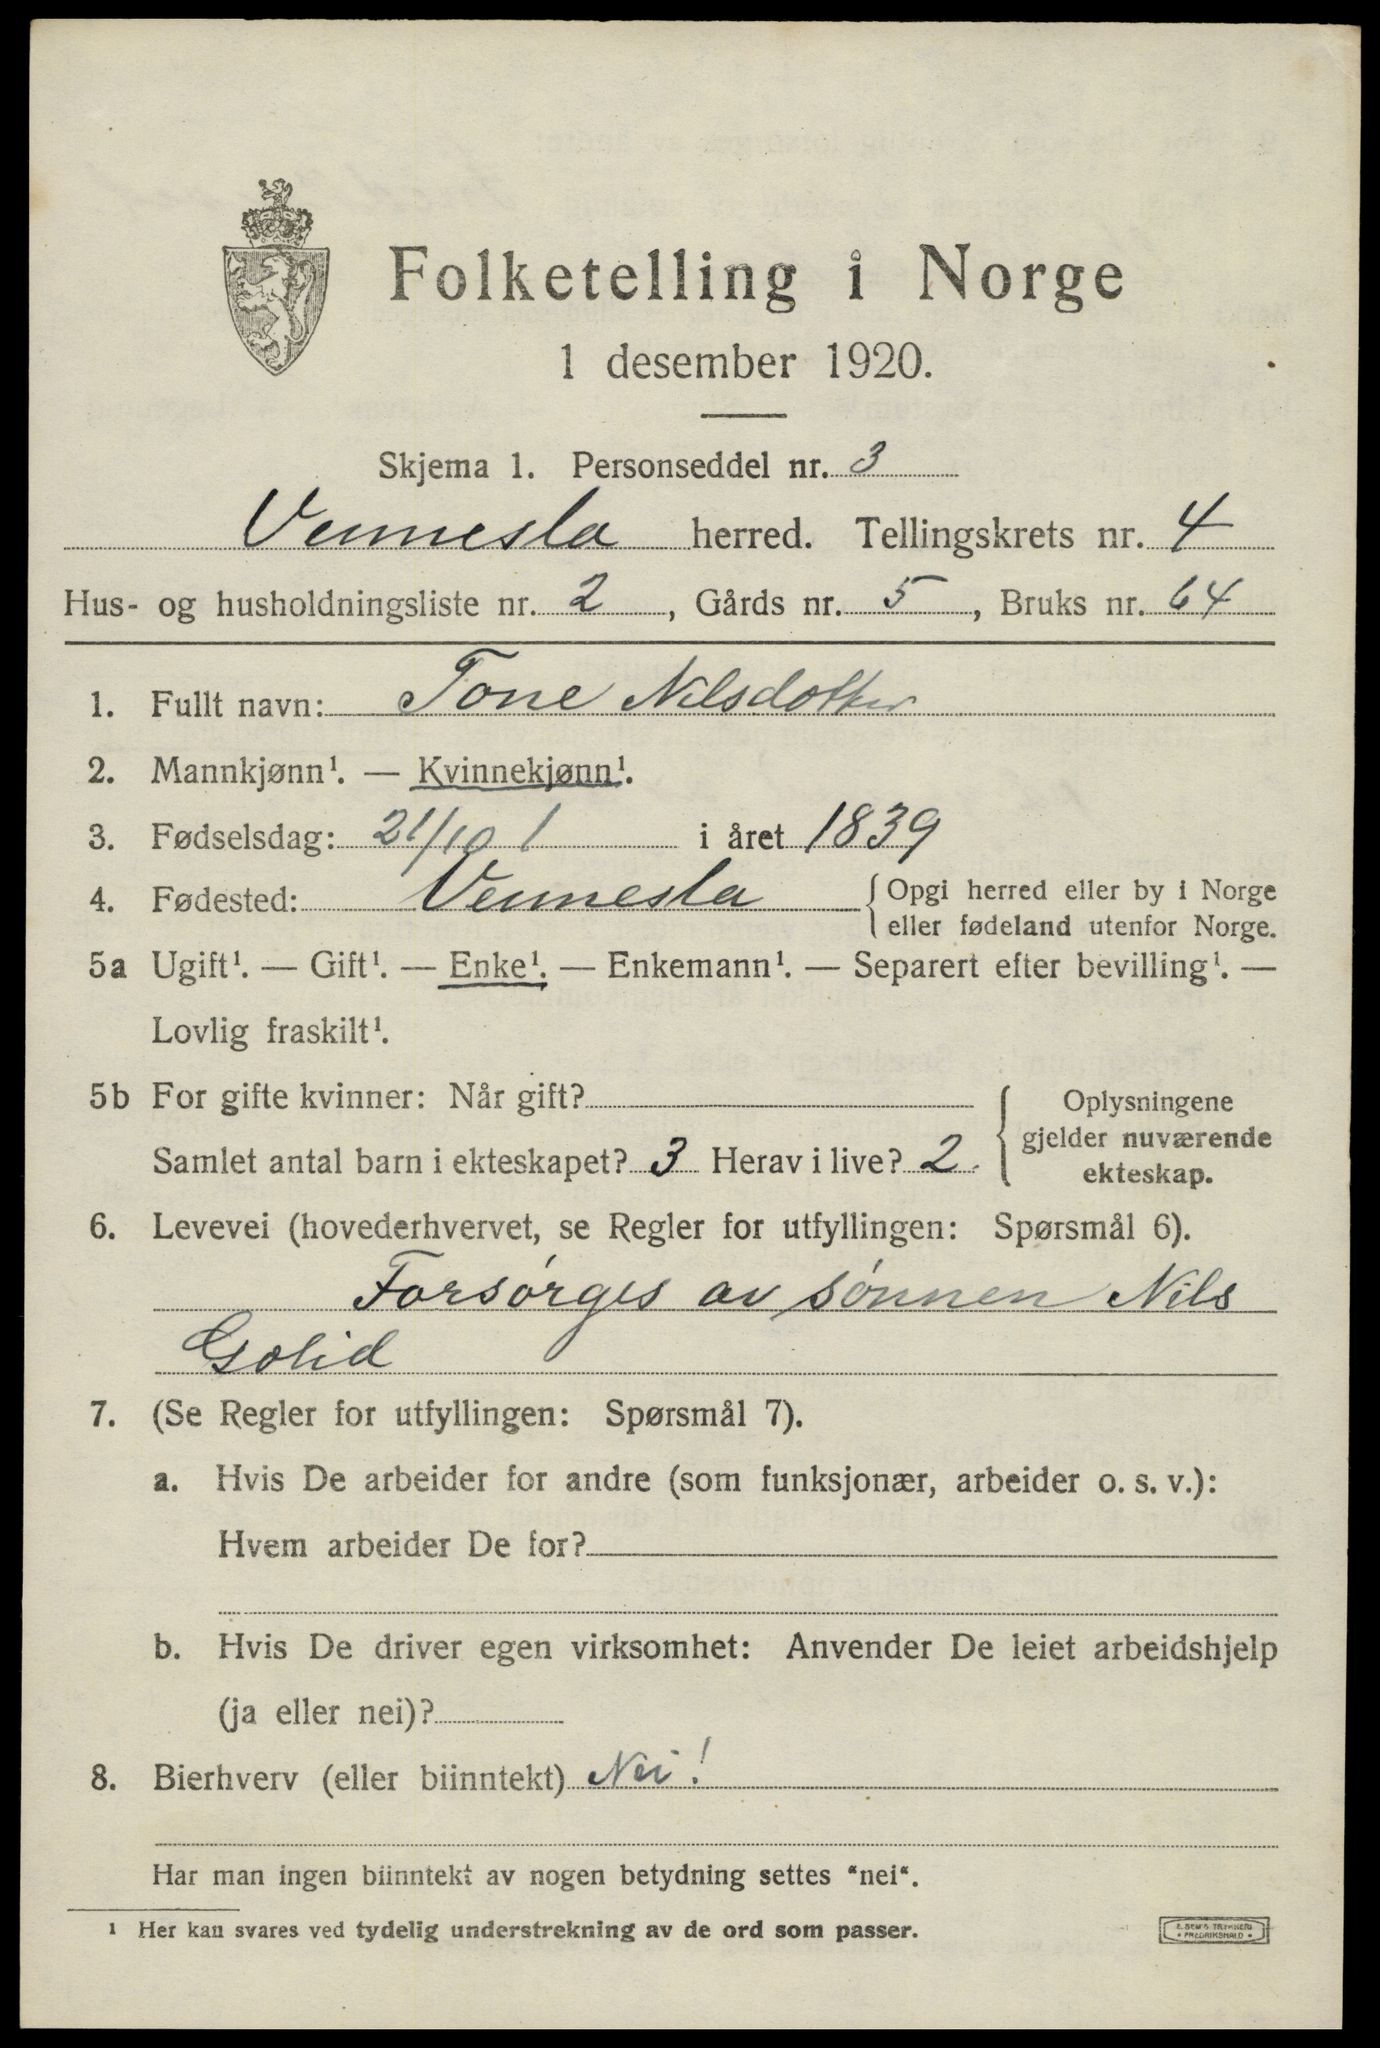 Folketelling i Norge
1 desember 1920.
Skjema 1. Personseddel nr. 3
Vennesla herred. Tellingskrets nr. 4
Hus- og husholdningsliste nr. 2, Gårds nr. 5, Bruks nr. 64
1. Fullt navn: Tone Nilsdotter
2. Mannkjønn¹. — Kvinnekjønn¹.
3. Fødselsdag: 21/10 i året 1839
4. Fødested: Vennesla { Opgi herred eller by i Norge
eller fødeland utenfor Norge.
5a Ugift¹. — Gift¹. — Enke¹. — Enkemann¹. — Separert efter bevilling¹. —
Lovlig fraskilt¹.
5b For gifte kvinner: Når gift?
Samlet antal barn i ekteskapet? 3 Herav i live? 2.
{ Oplysningene
gjelder nuværende
ekteskap.
6. Levevei (hovederhvervet, se Regler for utfyllingen: Spørsmål 6).
Forsørges av sønnen Nils
7. (Se Regler for utfyllingen: Spørsmål 7).
a. Hvis De arbeider for andre (som funksjonær, arbeider o. s. v.):
Hvem arbeider De for?
b. Hvis De driver egen virksomhet: Anvender De leiet arbeidshjelp
(ja eller nei)?
8. Bierhverv (eller biinntekt) Nei!
Har man ingen biinntekt av nogen betydning settes "nei".
¹ Her kan svares ved tydelig understrekning av de ord som passer.
E. SEM'S TRYKKERI
• FREDRIKSHALD •